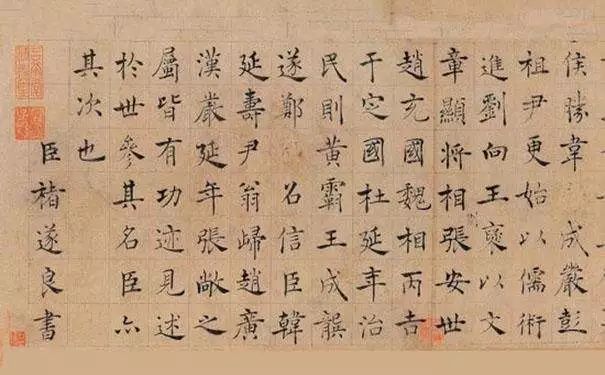 侯勝韋 成嚴彭
祖尹更始以儒術
進劉向王褒以文
章顯將相張安世
趙充國魏相丙吉
于定國杜延年治
民則黃霸王成龔
遂鄭 召信臣韓
延壽尹翁歸趙廣
漢嚴延年張敞之
屬皆有功迹見述
於世參其名臣亦
其次也
臣褚遂良書